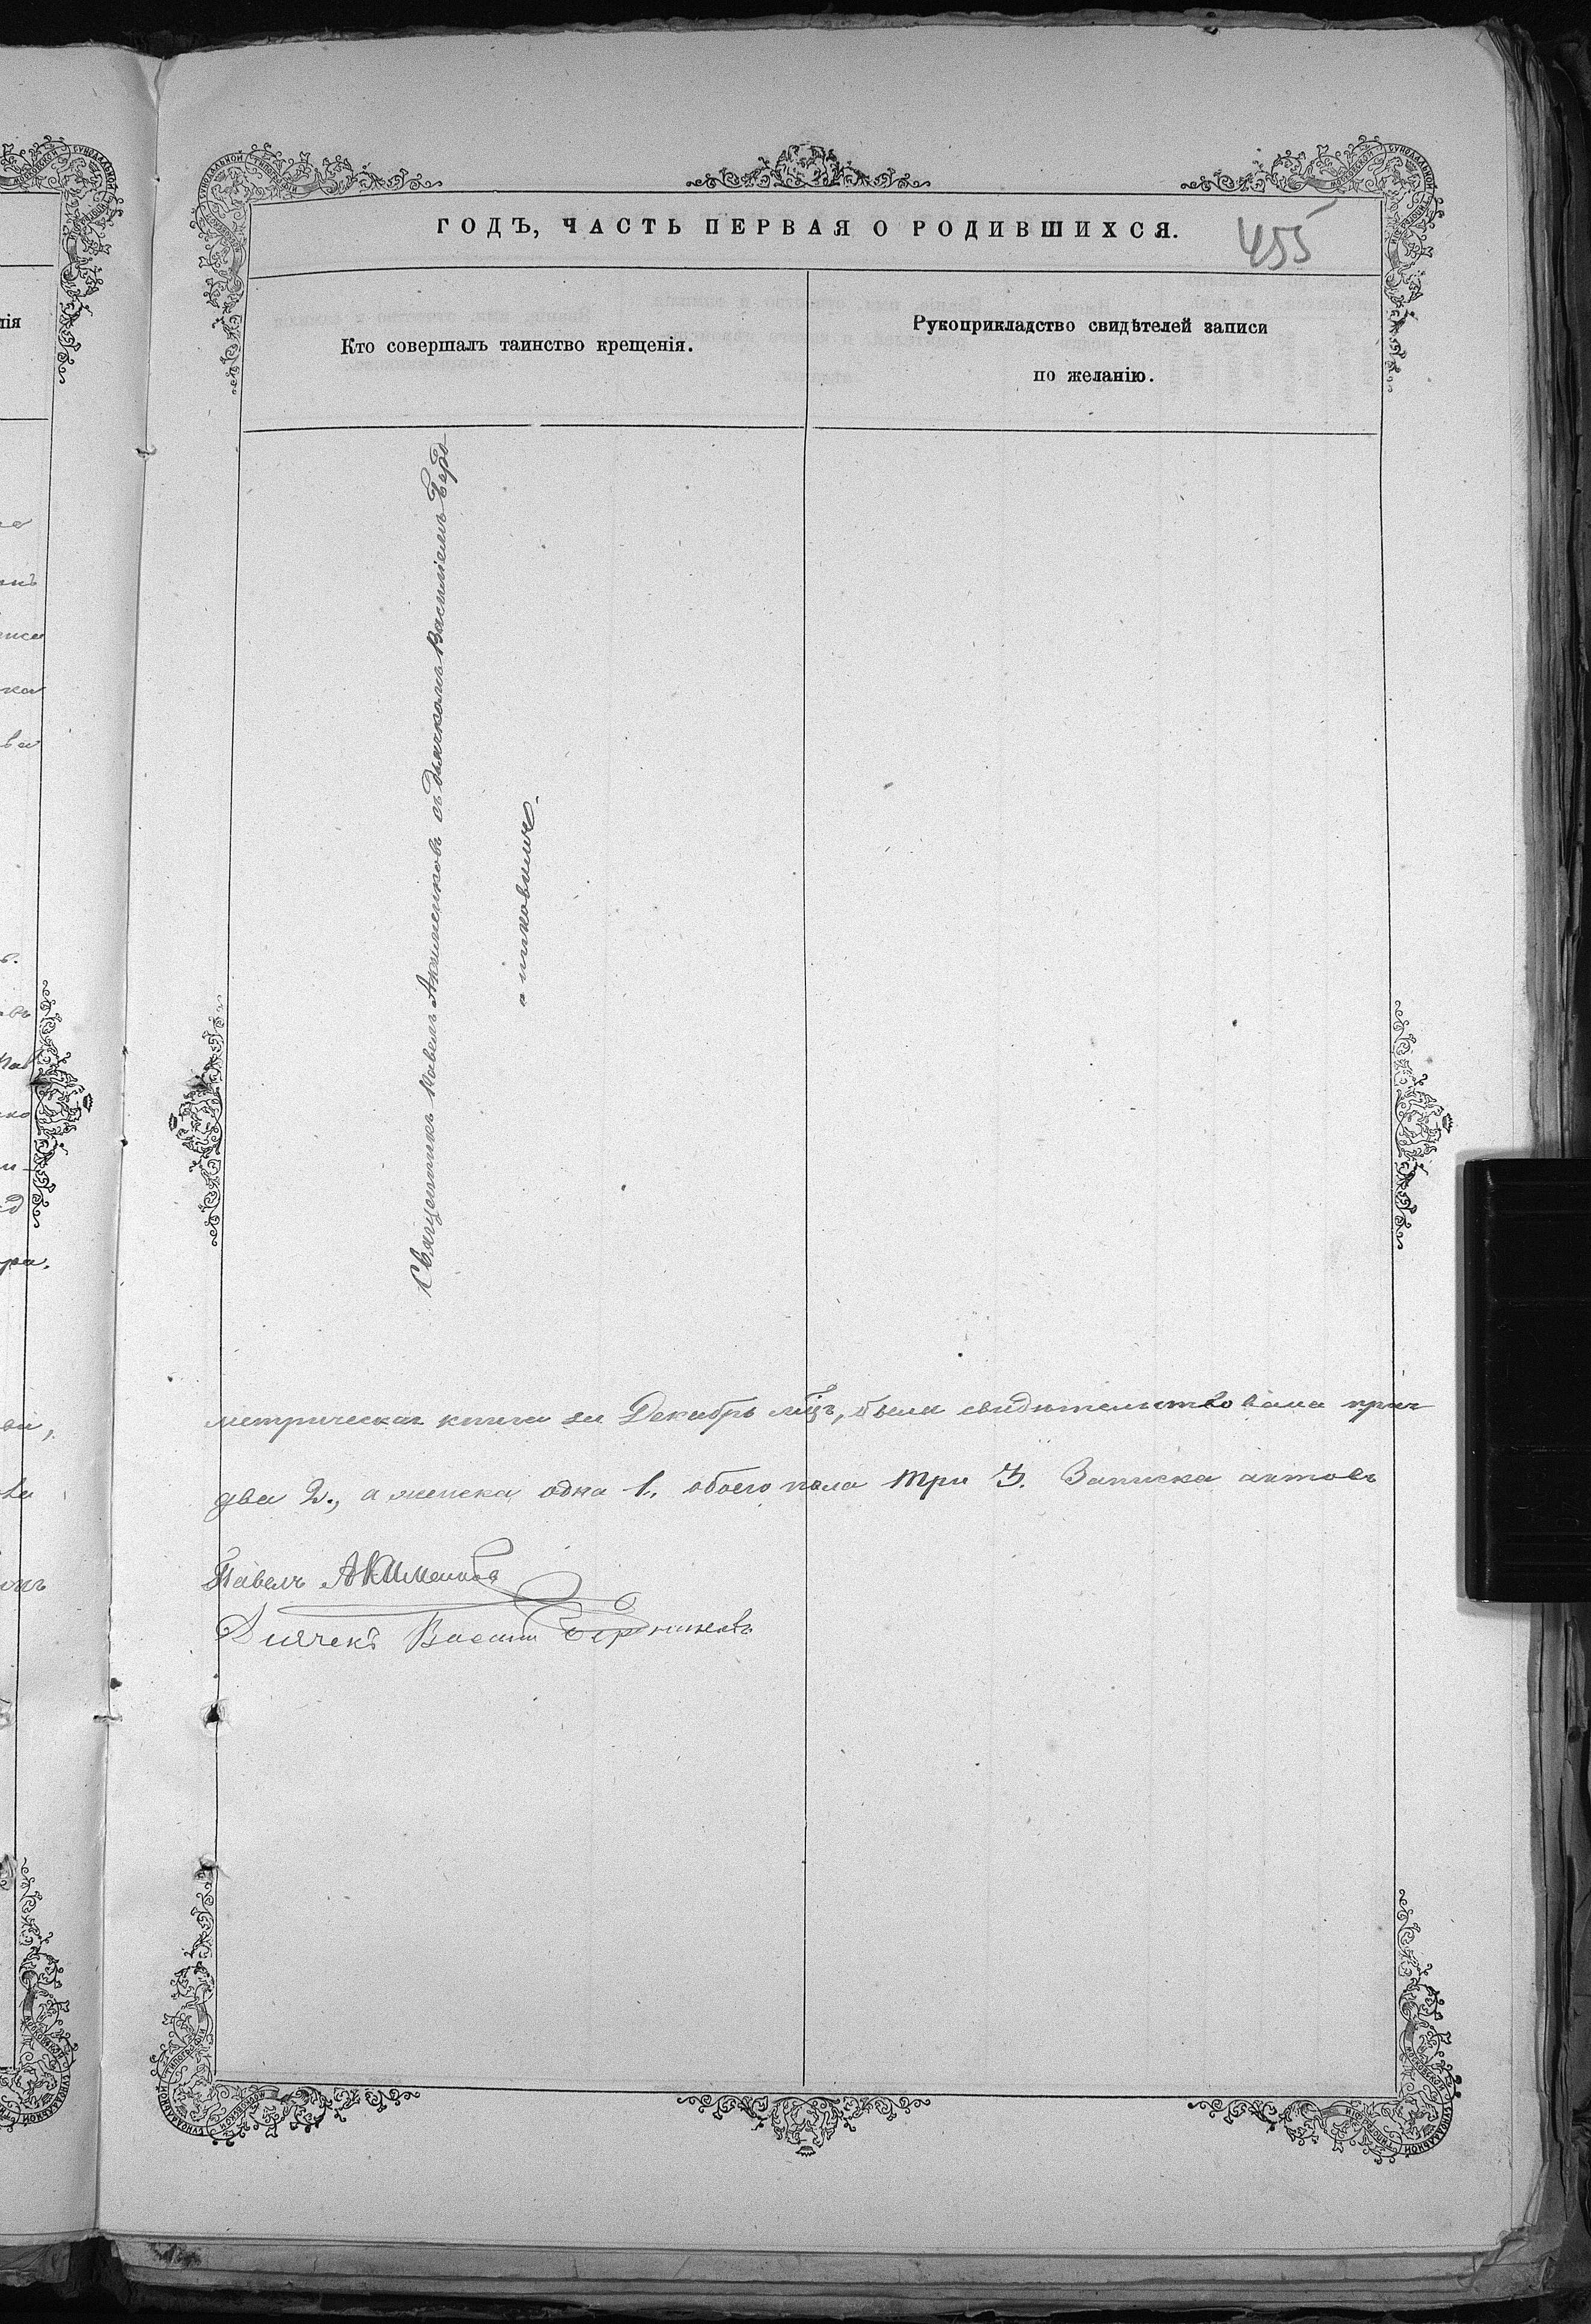 ГОДЪ, ЧАСТЬ ПЕРВАЯ О РОДИВШИХСЯ.
455
Кто совершалъ таинство крещенія.
Рукоприкладство свидѣтелей записи
по желанію.
Священникъ Павелъ Акименковъ съ дьячкомъ Василіемъ
метрическая книга за Декабрь мѣц, была свидѣтельствована прич
два 2., а женска одна 1, обоего пола три 3. Записка актовъ
Павелъ Акименковъ
Дьячекъ Васили